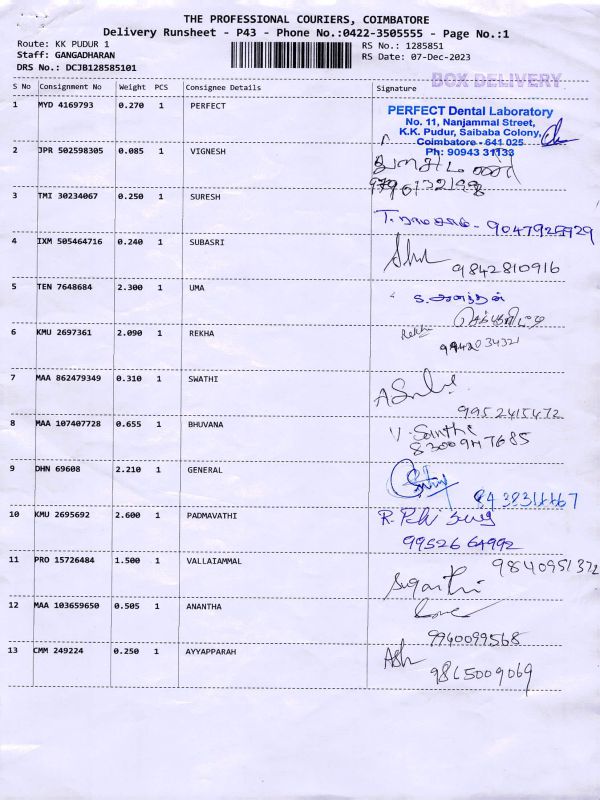 THE PROFESSIONAL COURIERS, COIMBATORE
Delivery Runsheet - P43 - Phone No.:0422-3505555 - Page No.:1
Route: KK PUDUR 1
RS No.: 1285851
Staff: GANGADHARAN
RS Date: 07-Dec-2023
DRS No.: DCJB128585101
BOX DELIVERY
S No Consignment No Weight PCS Consignee Details Signature
1 MYD 4169793 0.270 1 PERFECT
PERFECT Dental Laboratory
No. 11, Nanjammal Street,
K.K. Pudur, Saibaba Colony,
Coimbatore - 641 025
Ph: 90943 31133
2 JPR 502598305 0.085 1 VIGNESH
3 TMI 30234067 0.250 1 SURESH
4 IXM 505464716 0.240 1 SUBASRI
9842810916
5 TEN 7648684 2.300 1 UMA
6 KMU 2697361 2.090 1 REKHA
Rekha
7 MAA 862479349 0.310 1 SWATHI
9952415472
8 MAA 107407728 0.655 1 BHUVANA
V. Santhi
9 DHN 69608 2.210 1 GENERAL
10 KMU 2695692 2.600 1 PADMAVATHI
99526 64992
11 PRO 15726484 1.500 1 VALLAIAMMAL
9840951372
Suganthi
12 MAA 103659650 0.505 1 ANANTHA
9940099568
13 CMM 249224 0.250 1 AYYAPPARAH
Ash
9865009069